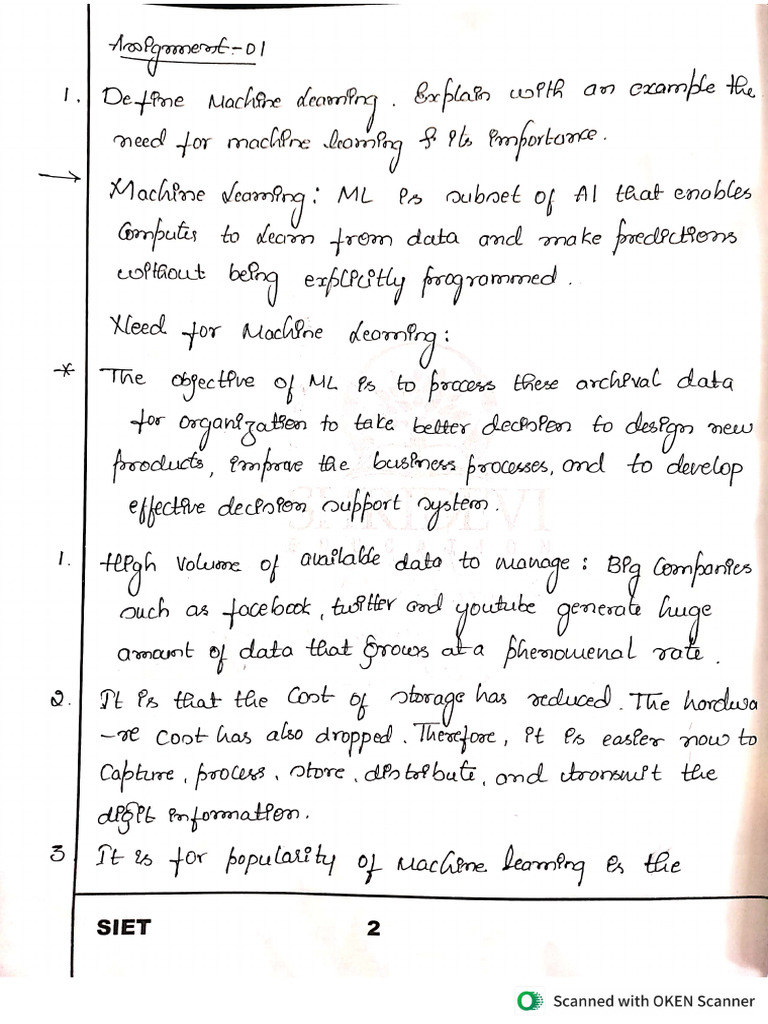 Assignment-01
1. Define Machine Learning. Explain with an example the
need for machine learning & its importance.
→ Machine Learning: ML is subset of AI that enables
Computes to learn from data and make predictions
without being explicitly programmed.
Need for Machine Learning:
* The objective of ML is to process these archival data
for organization to take better decision to design new
products, improve the business processes, and to develop
effective decision support system.
1. High volume of available data to manage: Big Companies
such as facebook, twitter and youtube generate huge
amount of data that grows at a phenomenal rate.
2. It is that the cost of storage has reduced. The hardwa
-re cost has also dropped. Therefore, it is easier now to
Capture, process, store, distribute, and transmit the
digit information.
3 It is for popularity of Machine learning is the
SIET 2
Scanned with OKEN Scanner